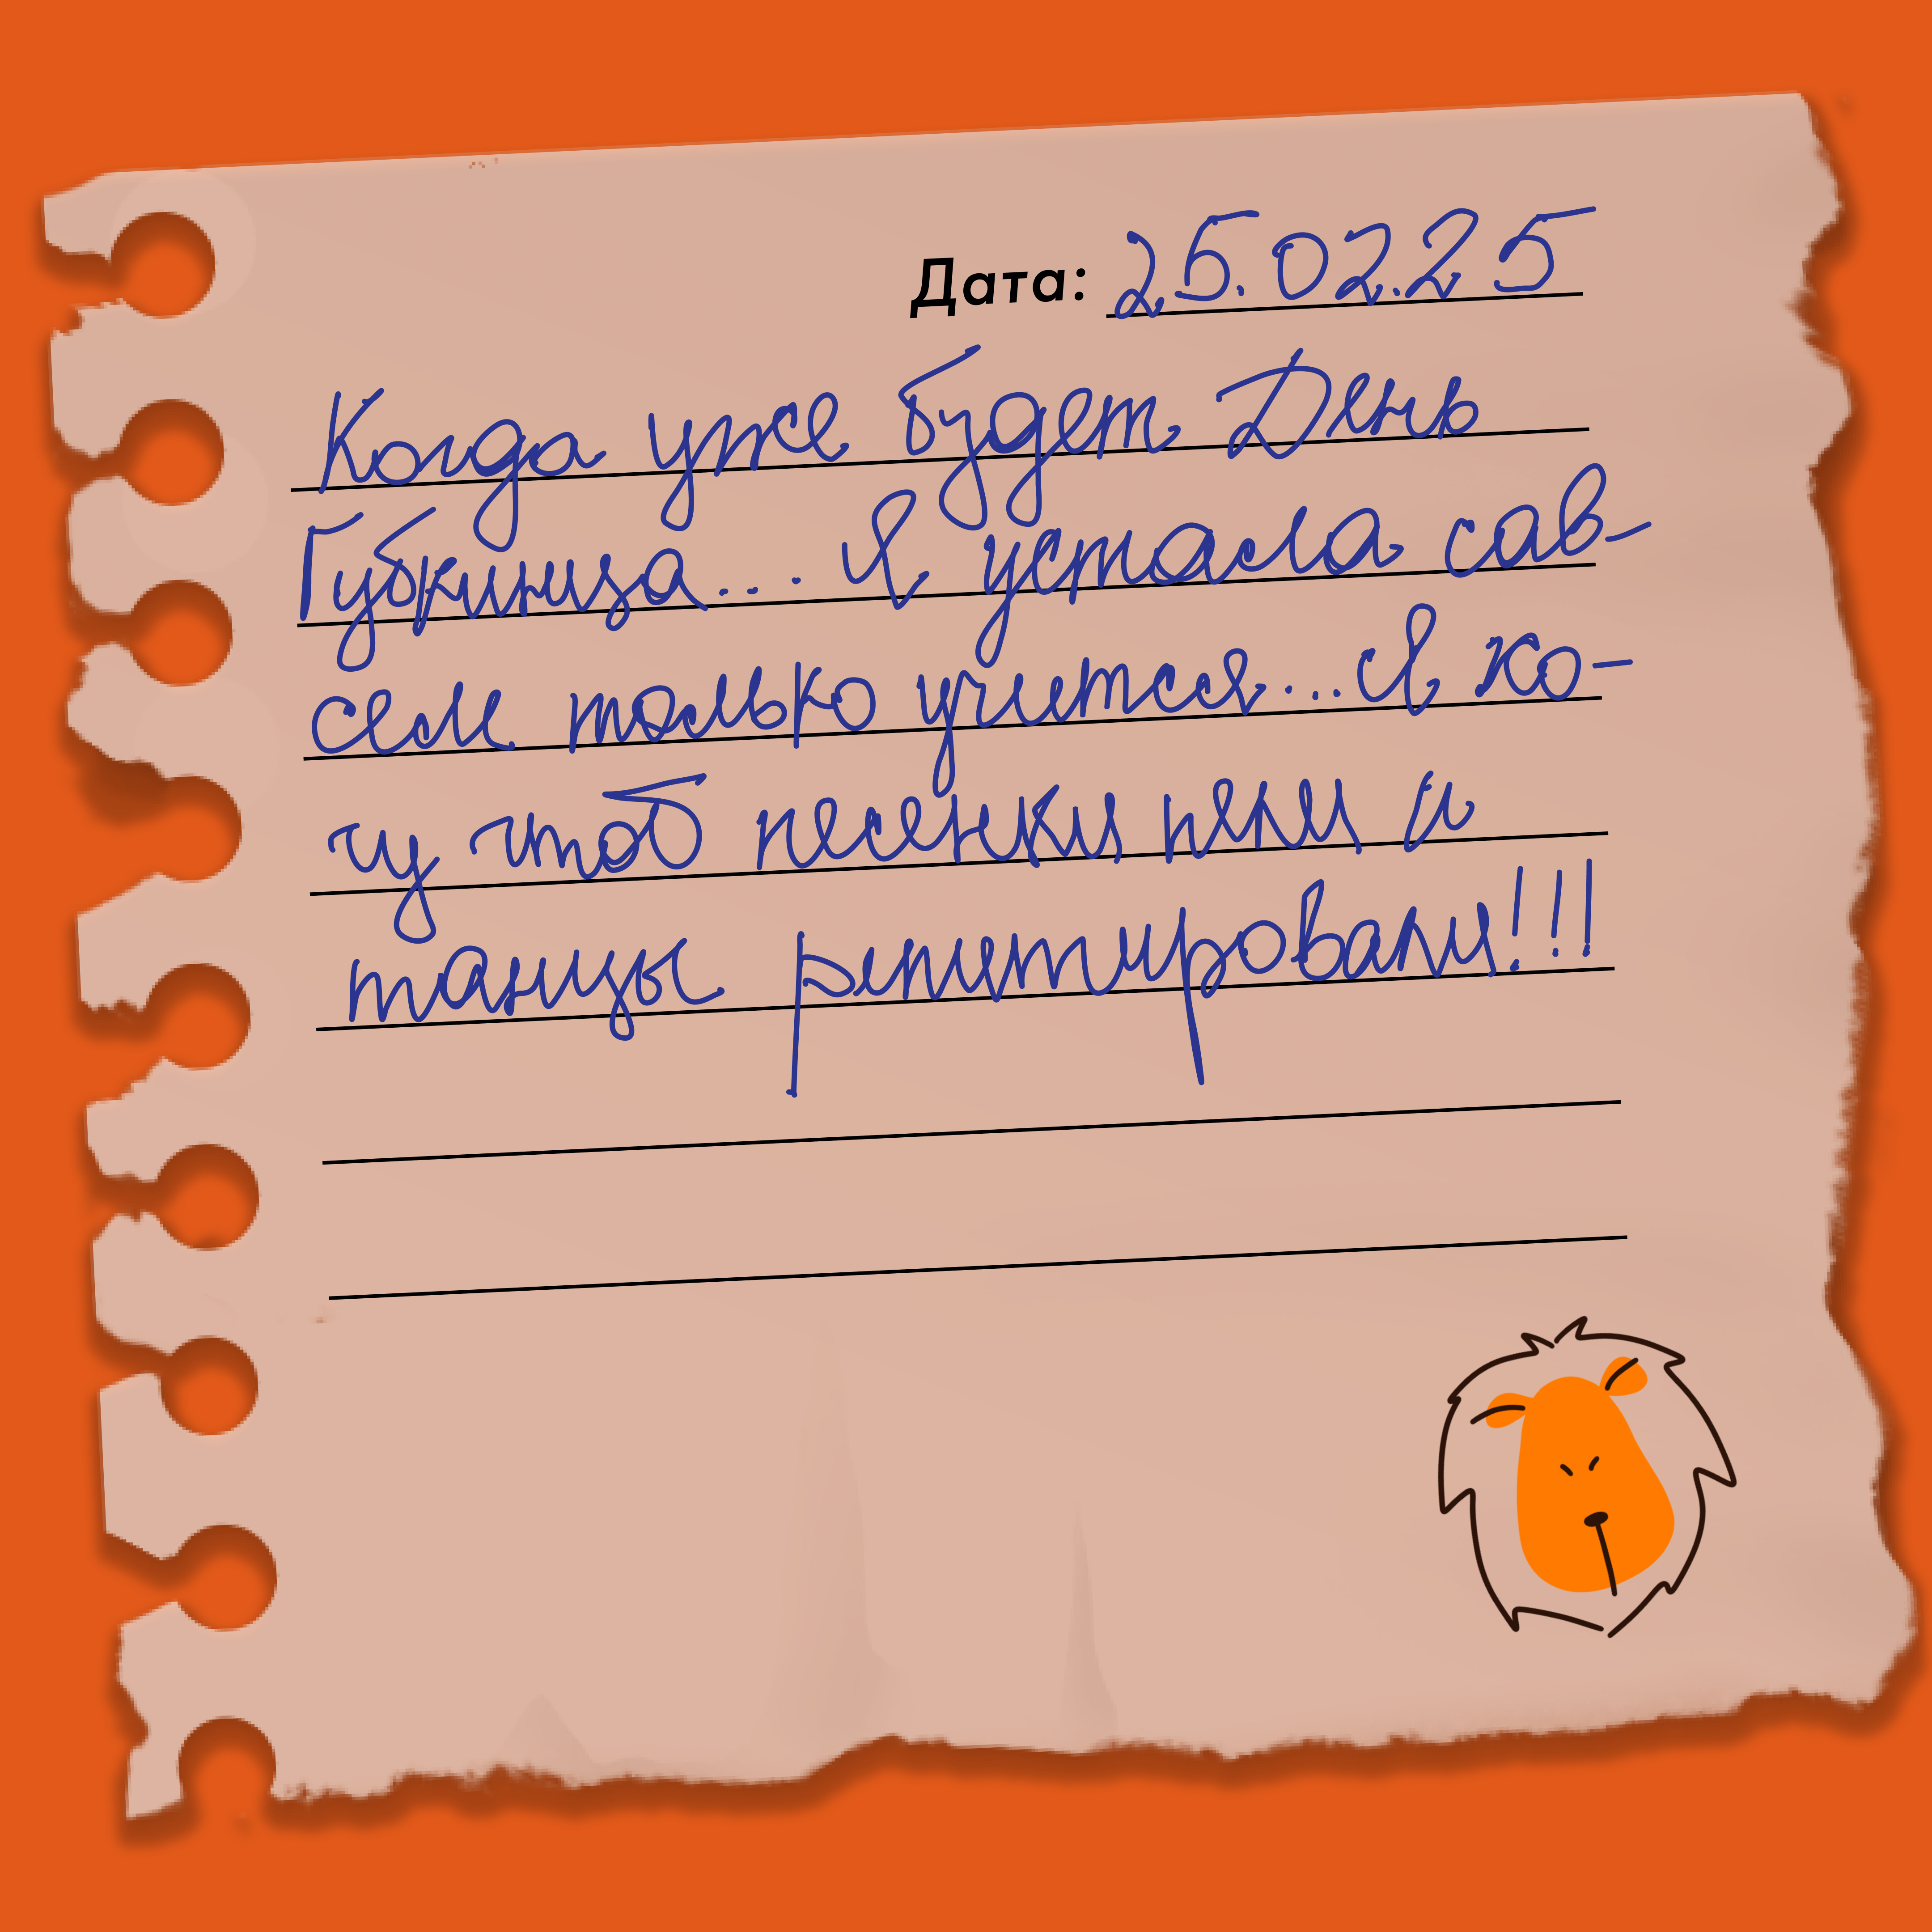 Дата: 25.02.25
Когда уже будет День
Губкинца.... Я устала сав-
сем только учится.... Я хо-
чу чтоб песенки пели и
танцы репитировали!!!